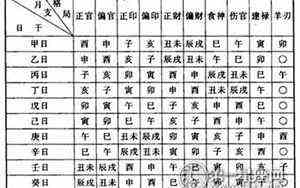 月支 格局 正官 偏官 正印 偏印 正财 偏财 食神 伤官 建禄 羊刃
日干
甲日 酉 申 子 亥 丑未 辰戌 巳 午 寅 卯
乙日 申 酉 亥 子 辰戌 丑未 午 巳 卯
丙日 子 亥 卯 寅 酉 申 辰戌 丑未 巳 午
丁日 亥 子 寅 卯 申 酉 丑未 辰戌 午
戊日 卯 寅 午 巳 子 亥 申 酉 巳 午
己日 寅 卯 巳 午 亥 子 酉 申 午
庚日 午 巳 丑未 辰戌 卯 寅 亥 子 申 酉
辛日 巳 午 辰戌 丑未 寅 卯 子 亥 酉
壬日 丑未 辰戌 酉 申 午 巳 寅 卯 亥 子
癸日 辰戌 丑未 申 酉 巳 午